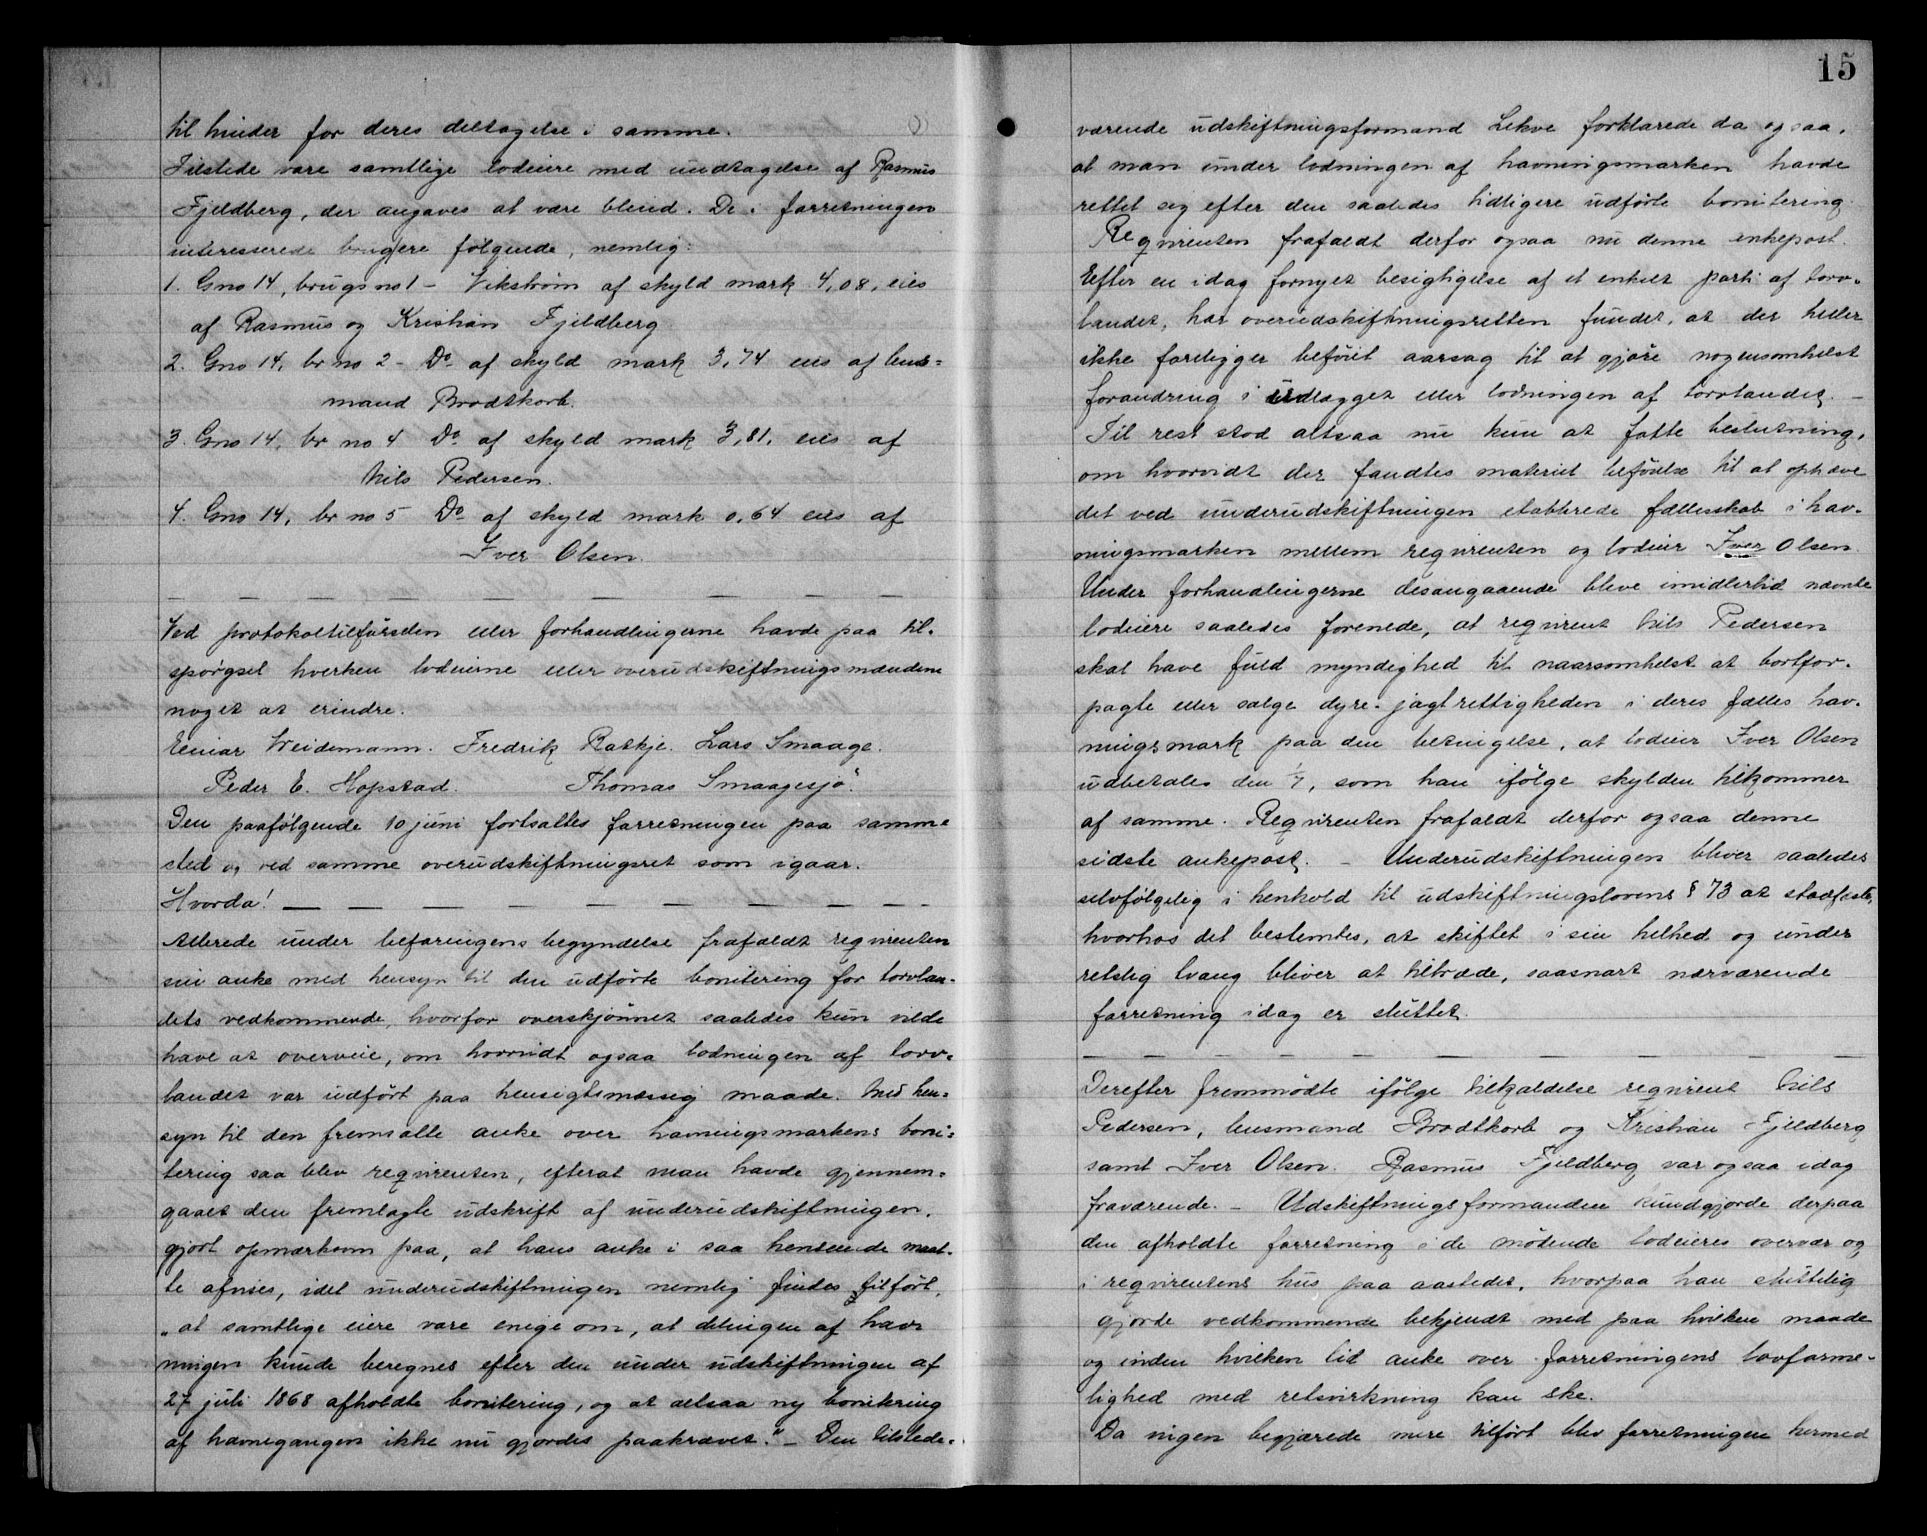 til hinder for deres deltagelse i samme.
Tilstede vare samtlige lodeiere med undtagelse af Rasmus
Fjeldberg, der angaves at være blind. De i forretningen
interesserede brugere følgende, nemlig:
1. Gno 14, brugs no 1 – Vikstrøm af skyld mark 4,08, eies
af Rasmus og Kristian Fjeldberg
2. Gno 14, br no 2 – Do af skyld mark 3,74 eies af lens=
mand Brodtkorb.
3. Gno 14, br no 4 Do af skyld mark 3,81, eies af
Nils Pedersen.
4. Gno 14, br no 5 Do af skyld mark 0,64 eies af
Iver Olsen.
Ved protokoltilførselen eller forhandlingerne havde paa til-
spørgsel hverken lodeierne eller overudskiftningsmændene
noget at erindre.
Einar Weidemann. Fredrik Raskje. Lars Smaage.
Peder E. Hopstad. Thomas Smaagesjø.
Den paafølgende 10 juni fortsattes forretningen paa samme
sted og ved samme overudskiftningsret som igaar.
Hvorda!
Allerede under befaringens begyndelse frafaldt reqvirenten
sin anke med hensyn til den udførte bonitering for torvlan-
dets vedkommende, hvorfor overskjønnet saaledes kun vilde
have at overveie, om hvorvidt ogsaa lodningen af torv-
landet var udført paa hensigtsmæssig maade. Med hen-
syn til den fremsatte anke over havningsmarkens boni-
tering saa blev reqvirenten, efterat man havde gjennem-
gaaet den fremlagte udskrift af underudskiftningen,
gjort opmærksom paa, at hans anke i saa henseende maat-
te afvises, idet underudskiftningen nemlig findes tilført,
„at samtlige eiere vare enige om, at delingen af hav-
ningen kunde beregnes efter den under udskiftningen af
27 juli 1868 afholdte bonitering, og at altsaa ny bonitering
af havnegangen ikke nu gjordes paakrævet." – Den tilstede-
15
værende udskiftningsformand Lekve forklarede da ogsaa,
at man under lodningen af havningsmarken havde
rettet sig efter den saaledes tidligere udførte bonitering.
Reqvirenten frafaldt derfor ogsaa nu denne ankepost.
Efter en idag fornyet besigtigelse af et enkelt parti af torv-
landet, har overudskiftningsretten fundet, at der heller
ikke foreligger beføiet aarsag til at gjøre nogensomhelst
forandring i udlægget eller lodningen af torvlandet. –
Til rest stod altsaa nu kun at fatte beslutning,
om hvorvidt der fandtes materiel beføielse til at ophæve
det ved underudskiftningen etablerede fællesskab i hav-
ningsmarken mellem reqvirenten og lodeier Iver Olsen.
Under forhandlingerne desangaaende bleve imidlertid nævnte
lodeiere saaledes forenede, at reqvirent Nils Pedersen
skal have fuld myndighed til naarsomhelst at bortfor-
pagte eller sælge dyre-jagtrettigheden i deres fælles hav-
ningsmark paa den betingelse, at lodeier Iver Olsen
udbetales den 1/7, som han ifølge skylden tilkommer
af samme. Reqvirenten frafaldt derfor ogsaa denne
sidste ankepost. – Underudskiftningen bliver saaledes
selvfølgelig i henhold til udskiftningslovens § 73 at stadfæste,
hvorhos det bestemtes, at skiftet i sin helhed og under
retslig tvang bliver at tiltræde, saasnart nærværende
forretning idag er sluttet.
Derefter fremmødte ifølge tilkaldelse reqvirent Nils
Pedersen, lensmand Brodtkorb og Kristian Fjeldberg
samt Iver Olsen. Rasmus Fjeldberg var ogsaa idag
fraværende. – Udskiftningsformanden kundgjorde derpaa
den afholdte forretning i de mødende lodeieres overvær og
i reqvirentens hus paa aastedet, hvorpaa han sluttelig
gjorde vedkommende bekjendt med paa hvilken maade
og inden hvilken tid anke over forretningens lovforme-
lighed med retsvirkning kan ske.
Da ingen begjærede mere tilført blev forretningen hermed